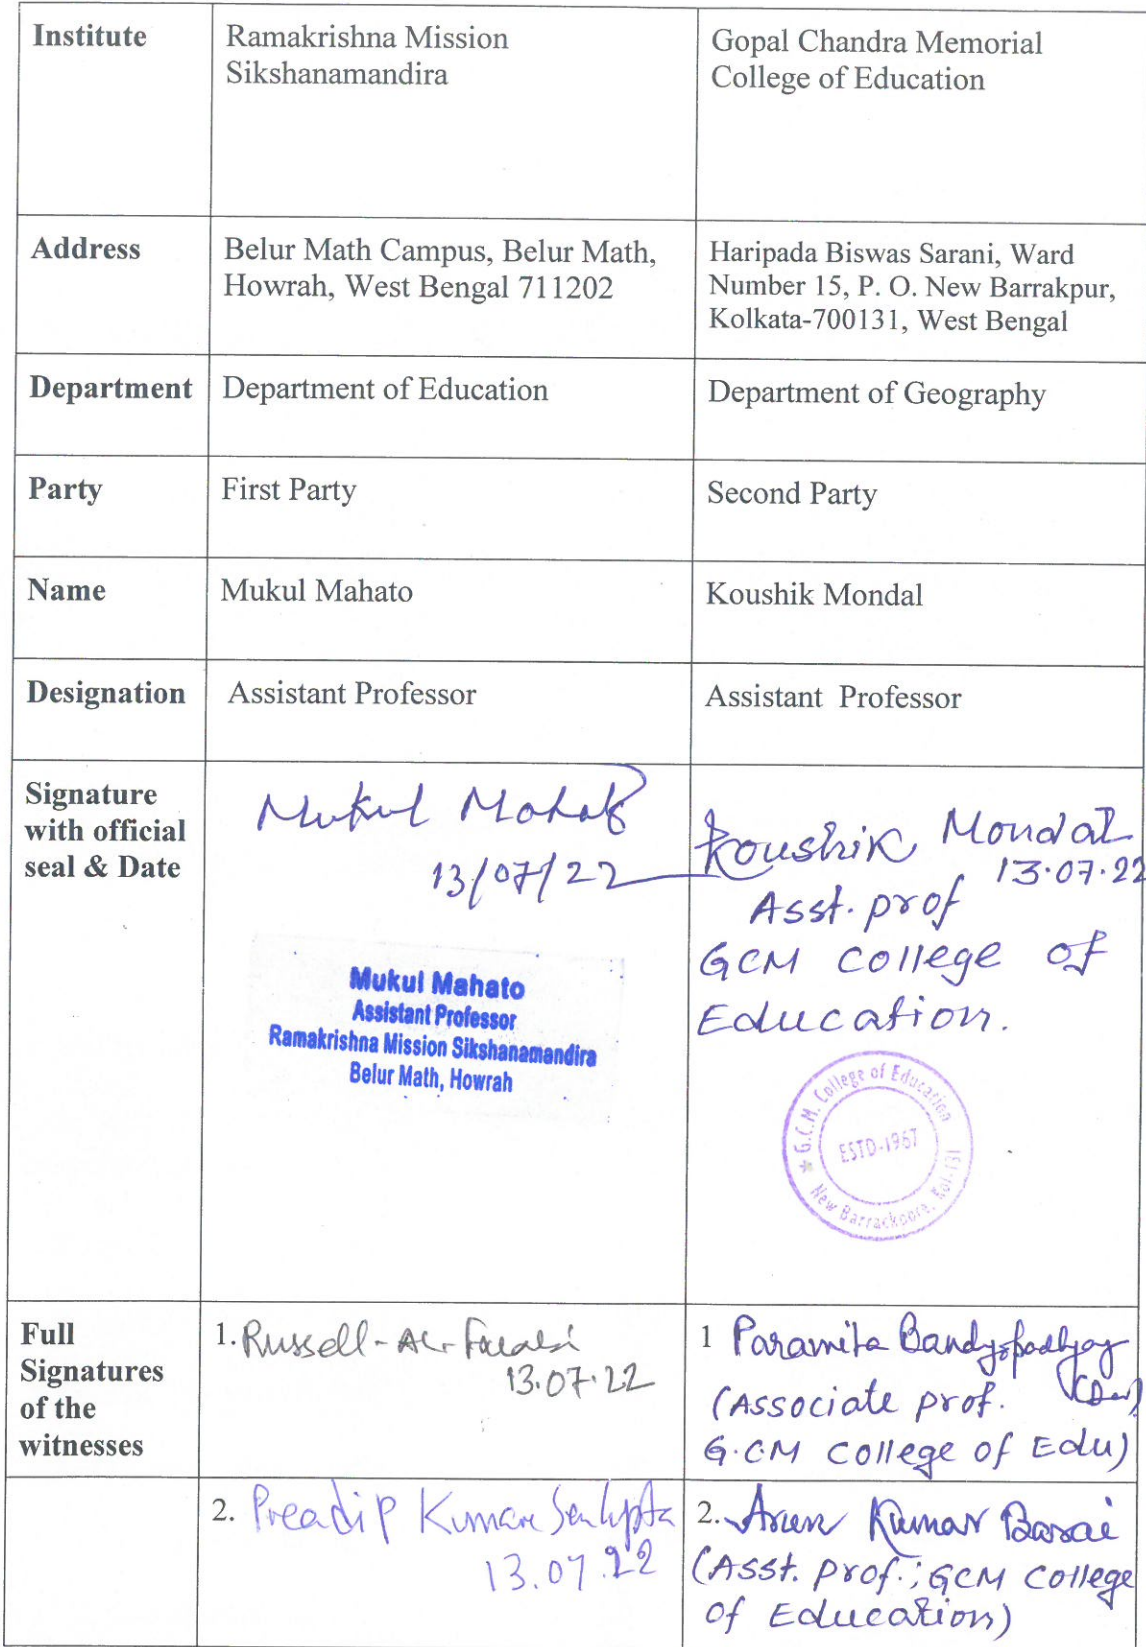 Institute
Ramakrishna Mission
Sikshanamandira
Gopal Chandra Memorial
College of Education
Address
Belur Math Campus, Belur Math,
Howrah, West Bengal 711202
Haripada Biswas Sarani, Ward
Number 15, P. O. New Barrakpur,
Kolkata-700131, West Bengal
Department
Department of Education
Department of Geography
Party
First Party
Second Party
Name
Mukul Mahato
Koushik Mondal
Designation
Assistant Professor
Assistant Professor
Signature
with official
seal & Date
Mukul Mahato
13/07/22
Mukul Mahato
Assistant Professor
Ramakrishna Mission Sikshanamandira
Belur Math, Howrah
Koushik Mondal
13.07.22
Asst. prof
GCM College of
Education.
G.C.M. College of Education
ESTD-1967
New Barrackpore, Kol-131
Full
Signatures
of the
witnesses
1. Russell-Al-
13.07.22
1 Paramita Bandyopadhyay
(Associate prof.
G.C.M College of Edu)
2. Preadip Kumar Sengupta
13.07.22
2. Arun Kumar Barai
(Asst. prof.; GCM College
of Education)